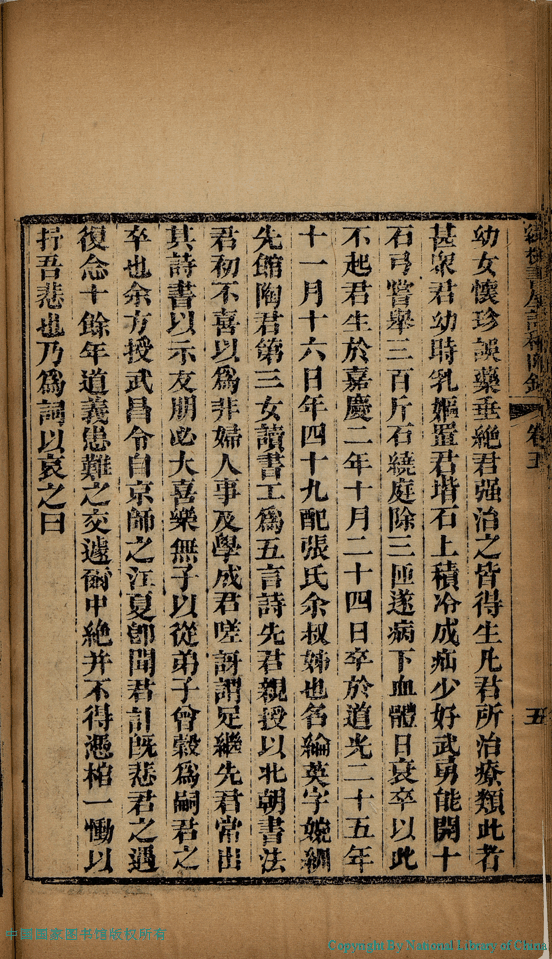 幼女懷珍誤藥垂絶君强治之皆得生凡君所治療類此者
甚衆君幼時乳嫗置君堦石上積冷成疝少好武勇能開十
石弓嘗舉三百斤石繞庭除三匝遂病下血體日衰卒以此
不起君生於嘉慶二年十月二十四日卒於道光二十五年
十一月十六日年四十九配張氏余叔姊也名綸英字婉紃
先館陶君第三女讀書工爲五言詩先君親授以北朝書法
君初不喜以爲非婦人事及學成君嗟訝謂足繼先君常出
其詩書以示友朋必大喜樂無子以從弟子曾榖爲嗣君之
卒也余方授武昌令自京師之江夏卽聞君訃旣悲君之遇
復念十餘年道義患難之交遽爾中絶并不得憑棺一慟以
抒吾悲也乃爲詞以哀之曰
卷五
五
中国国家图书馆版权所有
Copyright By National Library of China